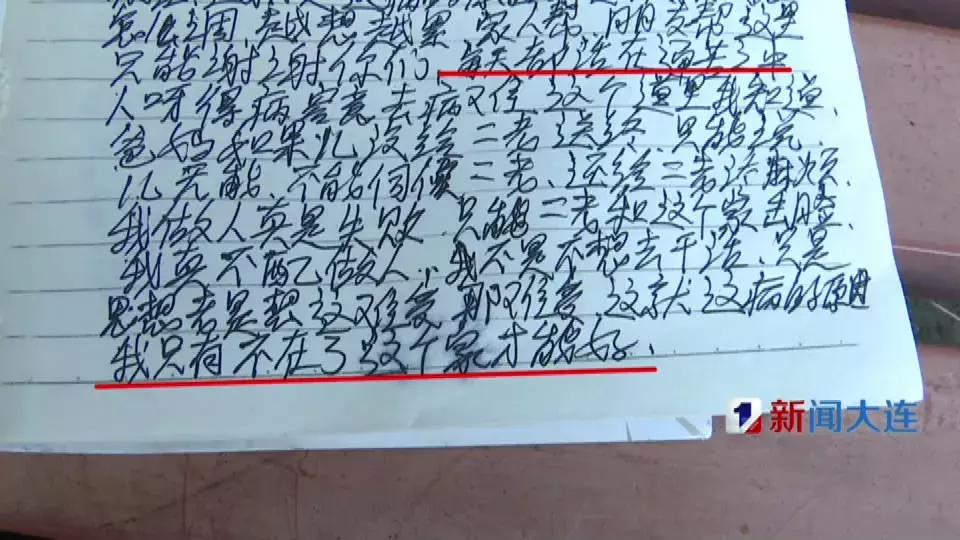 越想越累,家人帮,朋友帮,这里
只能谢谢你们,每天都活在痛苦之中
人呀得病容易去病难,这个道理我知道,
爸妈如果儿没给二老送终,只能说,
儿无能,不能伺候二老,还给二老添麻烦,
我做人真是失败,只能给二老和这个家丢脸,
我真不配做人,我不是不想去干活,只是
思想老是想这难受,那难受,这就这病的原因
我只有不在了这个家才能好.
1 新闻大连